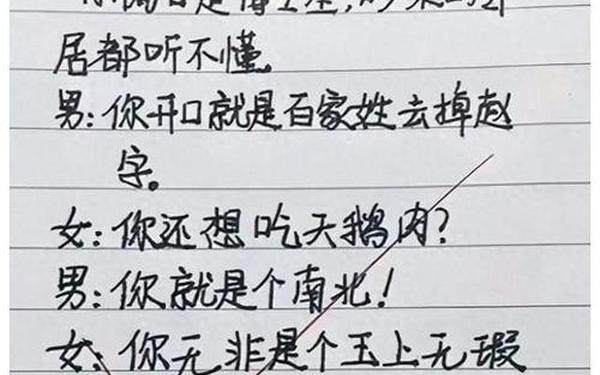 居都听不懂。
男:你开口就是百家姓去掉赵
字。
女:你还想吃天鹅肉?
男:你就是个南北!
女:你无非是个玉上无瑕